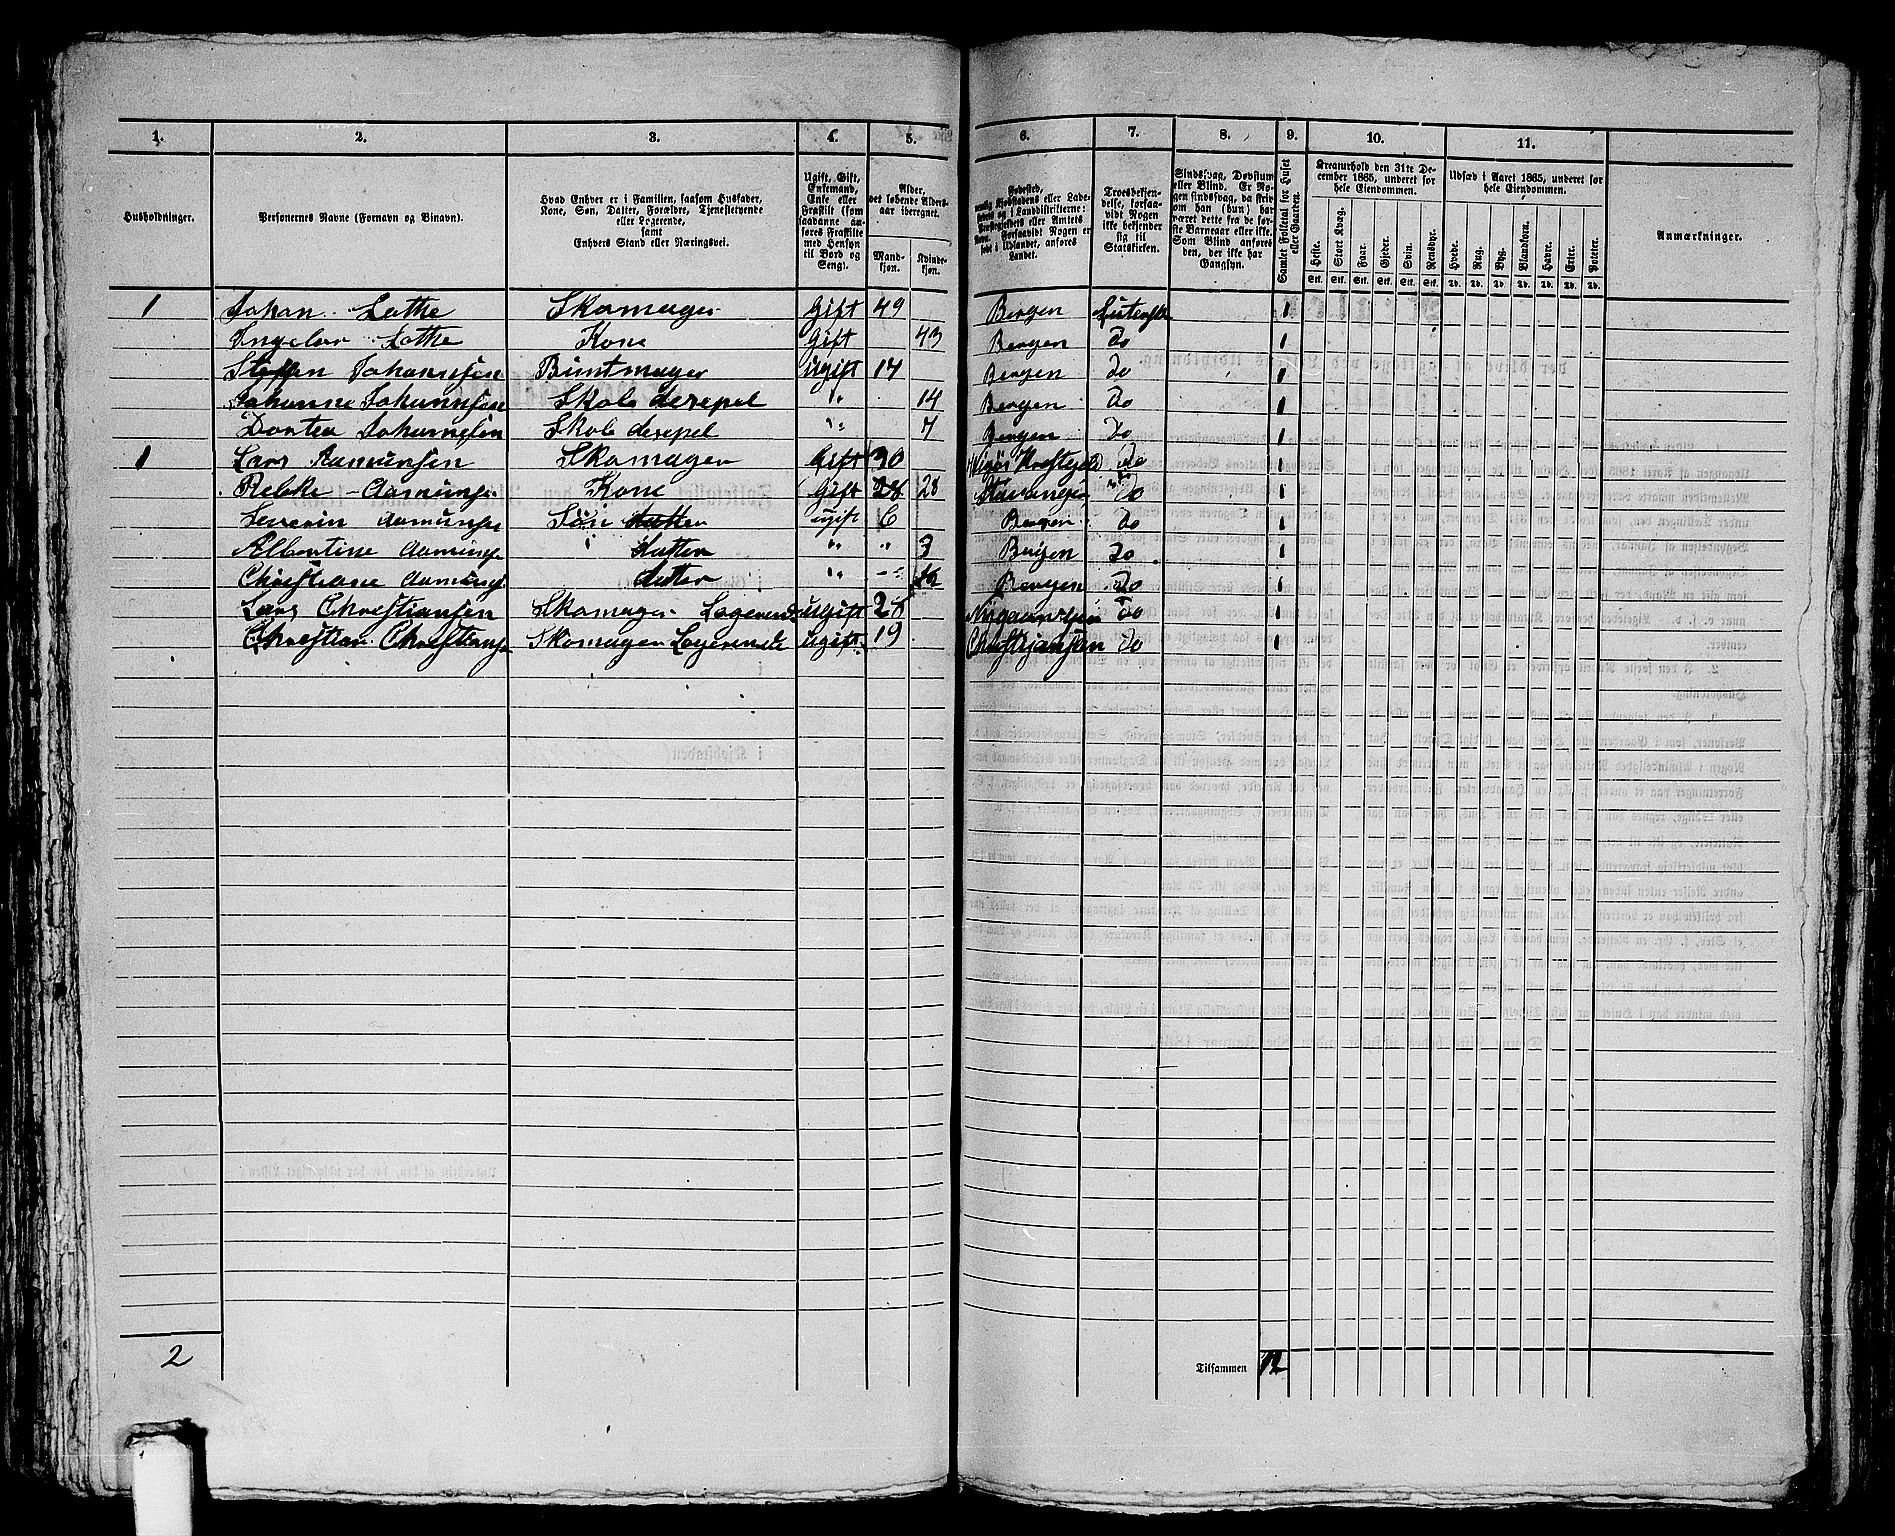 1. 2. 3. 4. 5. 6. 7. 8. 9. 10. 11.
Husholdninger.
Personernes Navne (Fornavn og Binavn).
Hvad Enhver er i Familien, saasom Husfader,
Kone, Søn, Datter, Forældre, Tjenestetyende
eller Logerende,
samt
Enhvers Stand eller Næringsvei.
Ugift, Gift,
Enkemand,
Enke eller
Fraskilt (som
saadanne an-
føres Fraskilte
med Hensyn
til Bord og
Seng).
Alder,
det løbende Alders-
aar iberegnet.
Mand-
kjøn.
Kvinde-
kjøn.
Fødested,
nemlig Kjøbstadens eller Lade-
stedets og i Landdistrikterne:
Præstegjældets eller Amtets
Navn. Forsaavidt Nogen er
født i Udlandet, anføres
Landet.
Troesbekjen-
delse, forsaa-
vidt Nogen
ikke bekjender
sig til
Statskirken.
Sindssvag, Døvstum
eller Blind. Er No-
gen sindssvag, da skriv
om han (hun) har
været dette fra de før-
ste Barneaar eller ikke.
Som Blind anføres
den, der ikke har
Gangsyn.
Samlet Folketal for Huset
eller Gaarden.
Kreaturhold den 31te De-
cember 1865, underet for
hele Eiendommen.
Heste. Stort Kvæg. Faar. Gjeder. Svin. Rensdyr.
Stk. Stk. Stk. Stk. Stk. Stk.
Udsæd i Aaret 1865, underet for
hele Eiendommen.
Hvede. Rug. Byg. Blandkorn. Havre. Erter. Poteter.
Td. Td. Td. Td. Td. Td. Td.
Anmærkninger.
1 Johan Lothe Skomager Gift 49 Bergen 1
Lothe Kone Gift 43 Bergen Do 1
Steffen Johannsen Buntmager Ugift 14 Bergen do 1
Johanne Johannsen Skole desepel " 14 Bergen Do 1
Dortea Johannsen Skole desepel " 7 Bergen Do 1
1 Lars Aamunsen Skomager Gift 30 Do 1
Aamunse Kone Gift 28 28 Do 1
Severin Aamunsen Søn Datter ugift 6 Bergen Do 1
Albertine Aamunse Datter " " 3 Bergen Do 1
Christiane Aamuns Datter " Bergen Do 1
Lars Christiansen Skomager Logerende Ugift 28 Do 1
Christian Christianse Skomager Logerende Ugift 19 Do 1
2 Tilsammen 12